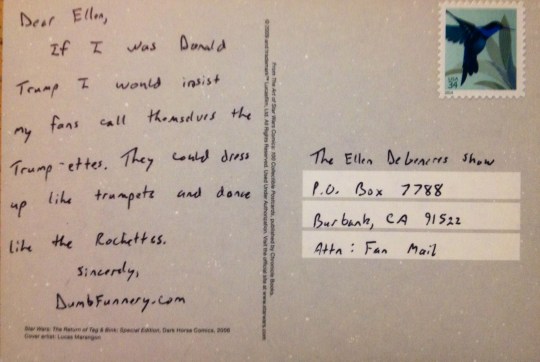 Dear Ellen,
If I was Donald
Trump I would insist
my fans call themselves the
Trump-ettes. They could dress
up like trumpets and dance
like the Rockettes.
Sincerely,
DumbFunnery.com
Star Wars: The Return of Tag & Bink: Special Edition, Dark Horse Comics, 2006
Cover artist: Lucas Marangon
From The Art of Star Wars Comics: 100 Collectible Postcards, published by Chronicle Books.
© 2009 and trademark™ Lucasfilm, Ltd. All Rights Reserved. Used Under Authorization. Visit the official site at www.starwars.com
USA
34
The Ellen DeGeneres Show
P.O. Box 7788
Burbank, CA 91522
Attn: Fan Mail